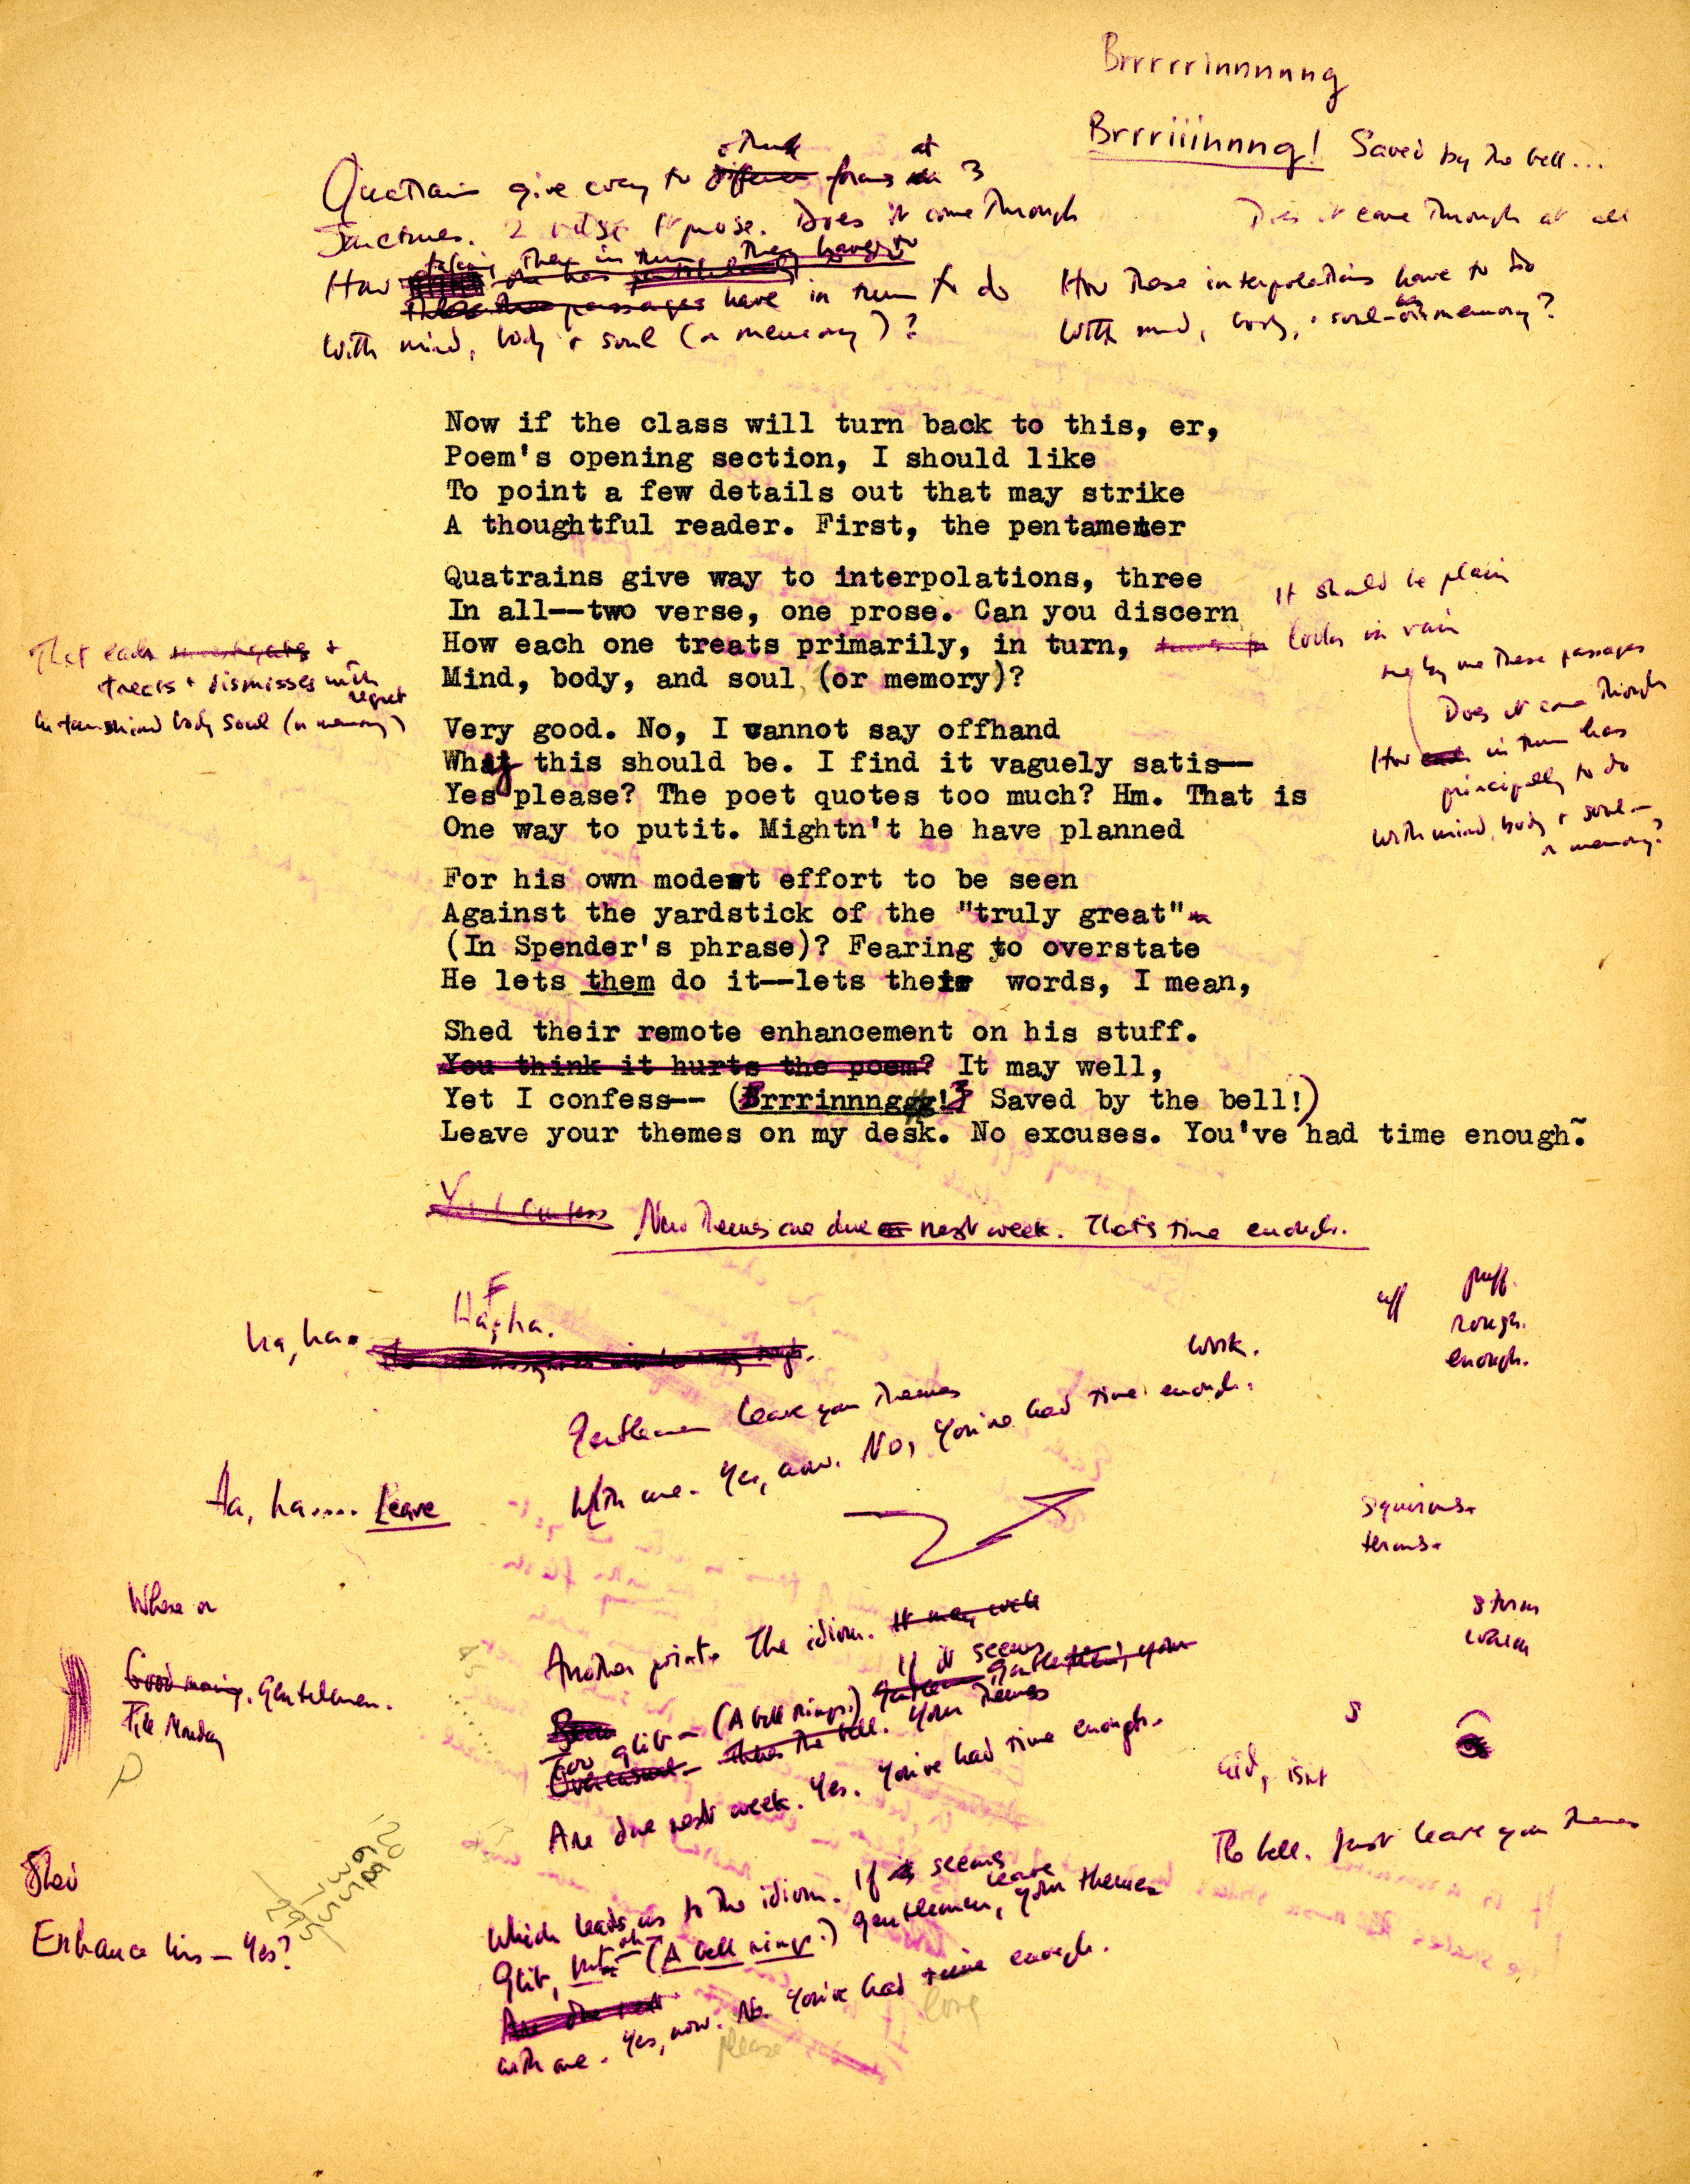 Brrrrrinnnnng
Brrriiinnnng! Saved by the bell...
Quatrains give way to other forms at 3
Junctures. 2 verse 1 prose. Does it come through
Does it come through at all
How taking them in turn they have to
passages have in turn to do
With mind, body & soul (or memory)?
How these interpolations have to do
With mind, body, & soul—or memory?
Now if the class will turn back to this, er,
Poem's opening section, I should like
To point a few details out that may strike
A thoughtful reader. First, the pentameter
Quatrains give way to interpolations, three
In all--two verse, one prose. Can you discern
How each one treats primarily, in turn,
Mind, body, and soul (or memory)?
It should be plain
looks in vain
one by one these passages
Does it come through
How each in turn has
principally to do
With mind, body & soul—
or memory?
That each &
treats & dismisses with
regret
in turn mind body soul (or memory)
Very good. No, I cannot say offhand
Why this should be. I find it vaguely satis--
Yes please? The poet quotes too much? Hm. That is
One way to putit. Mightn't he have planned
For his own modest effort to be seen
Against the yardstick of the "truly great"
(In Spender's phrase)? Fearing to overstate
He lets them do it--lets their words, I mean,
Shed their remote enhancement on his stuff.
You think it hurts the poem? It may well,
Yet I confess-- (Brrrinnnggg! Saved by the bell!)
Leave your themes on my desk. No excuses. You've had time enough.
Yet I confess
New themes are due next week. That's time enough.
Ha, ha.
ha, ha.
uff
puff.
rough.
enough.
work.
Gentlemen leave your themes
With me. Yes, now. No, you've had time enough.
Ha, ha.... Leave
squirms.
terms.
storm
warm
Where or
Good morning. Gentlemen.
Till Monday
Another point. The idiom. It may well
If it seems
Too glib — (A bell rings.) Gentlemen, your
Overcasual — There's the bell. Your themes
Are due next week. Yes. You've had time enough.
S
aid, isn't
The bell. Just leave your themes
Shed
Enhance his — Yes?
Which leads us to the idiom. If it seems
Glib, (A bell rings.) Gentlemen, leave your themes
Are due next
with me. Yes, now. No. You've had time enough.
please
long